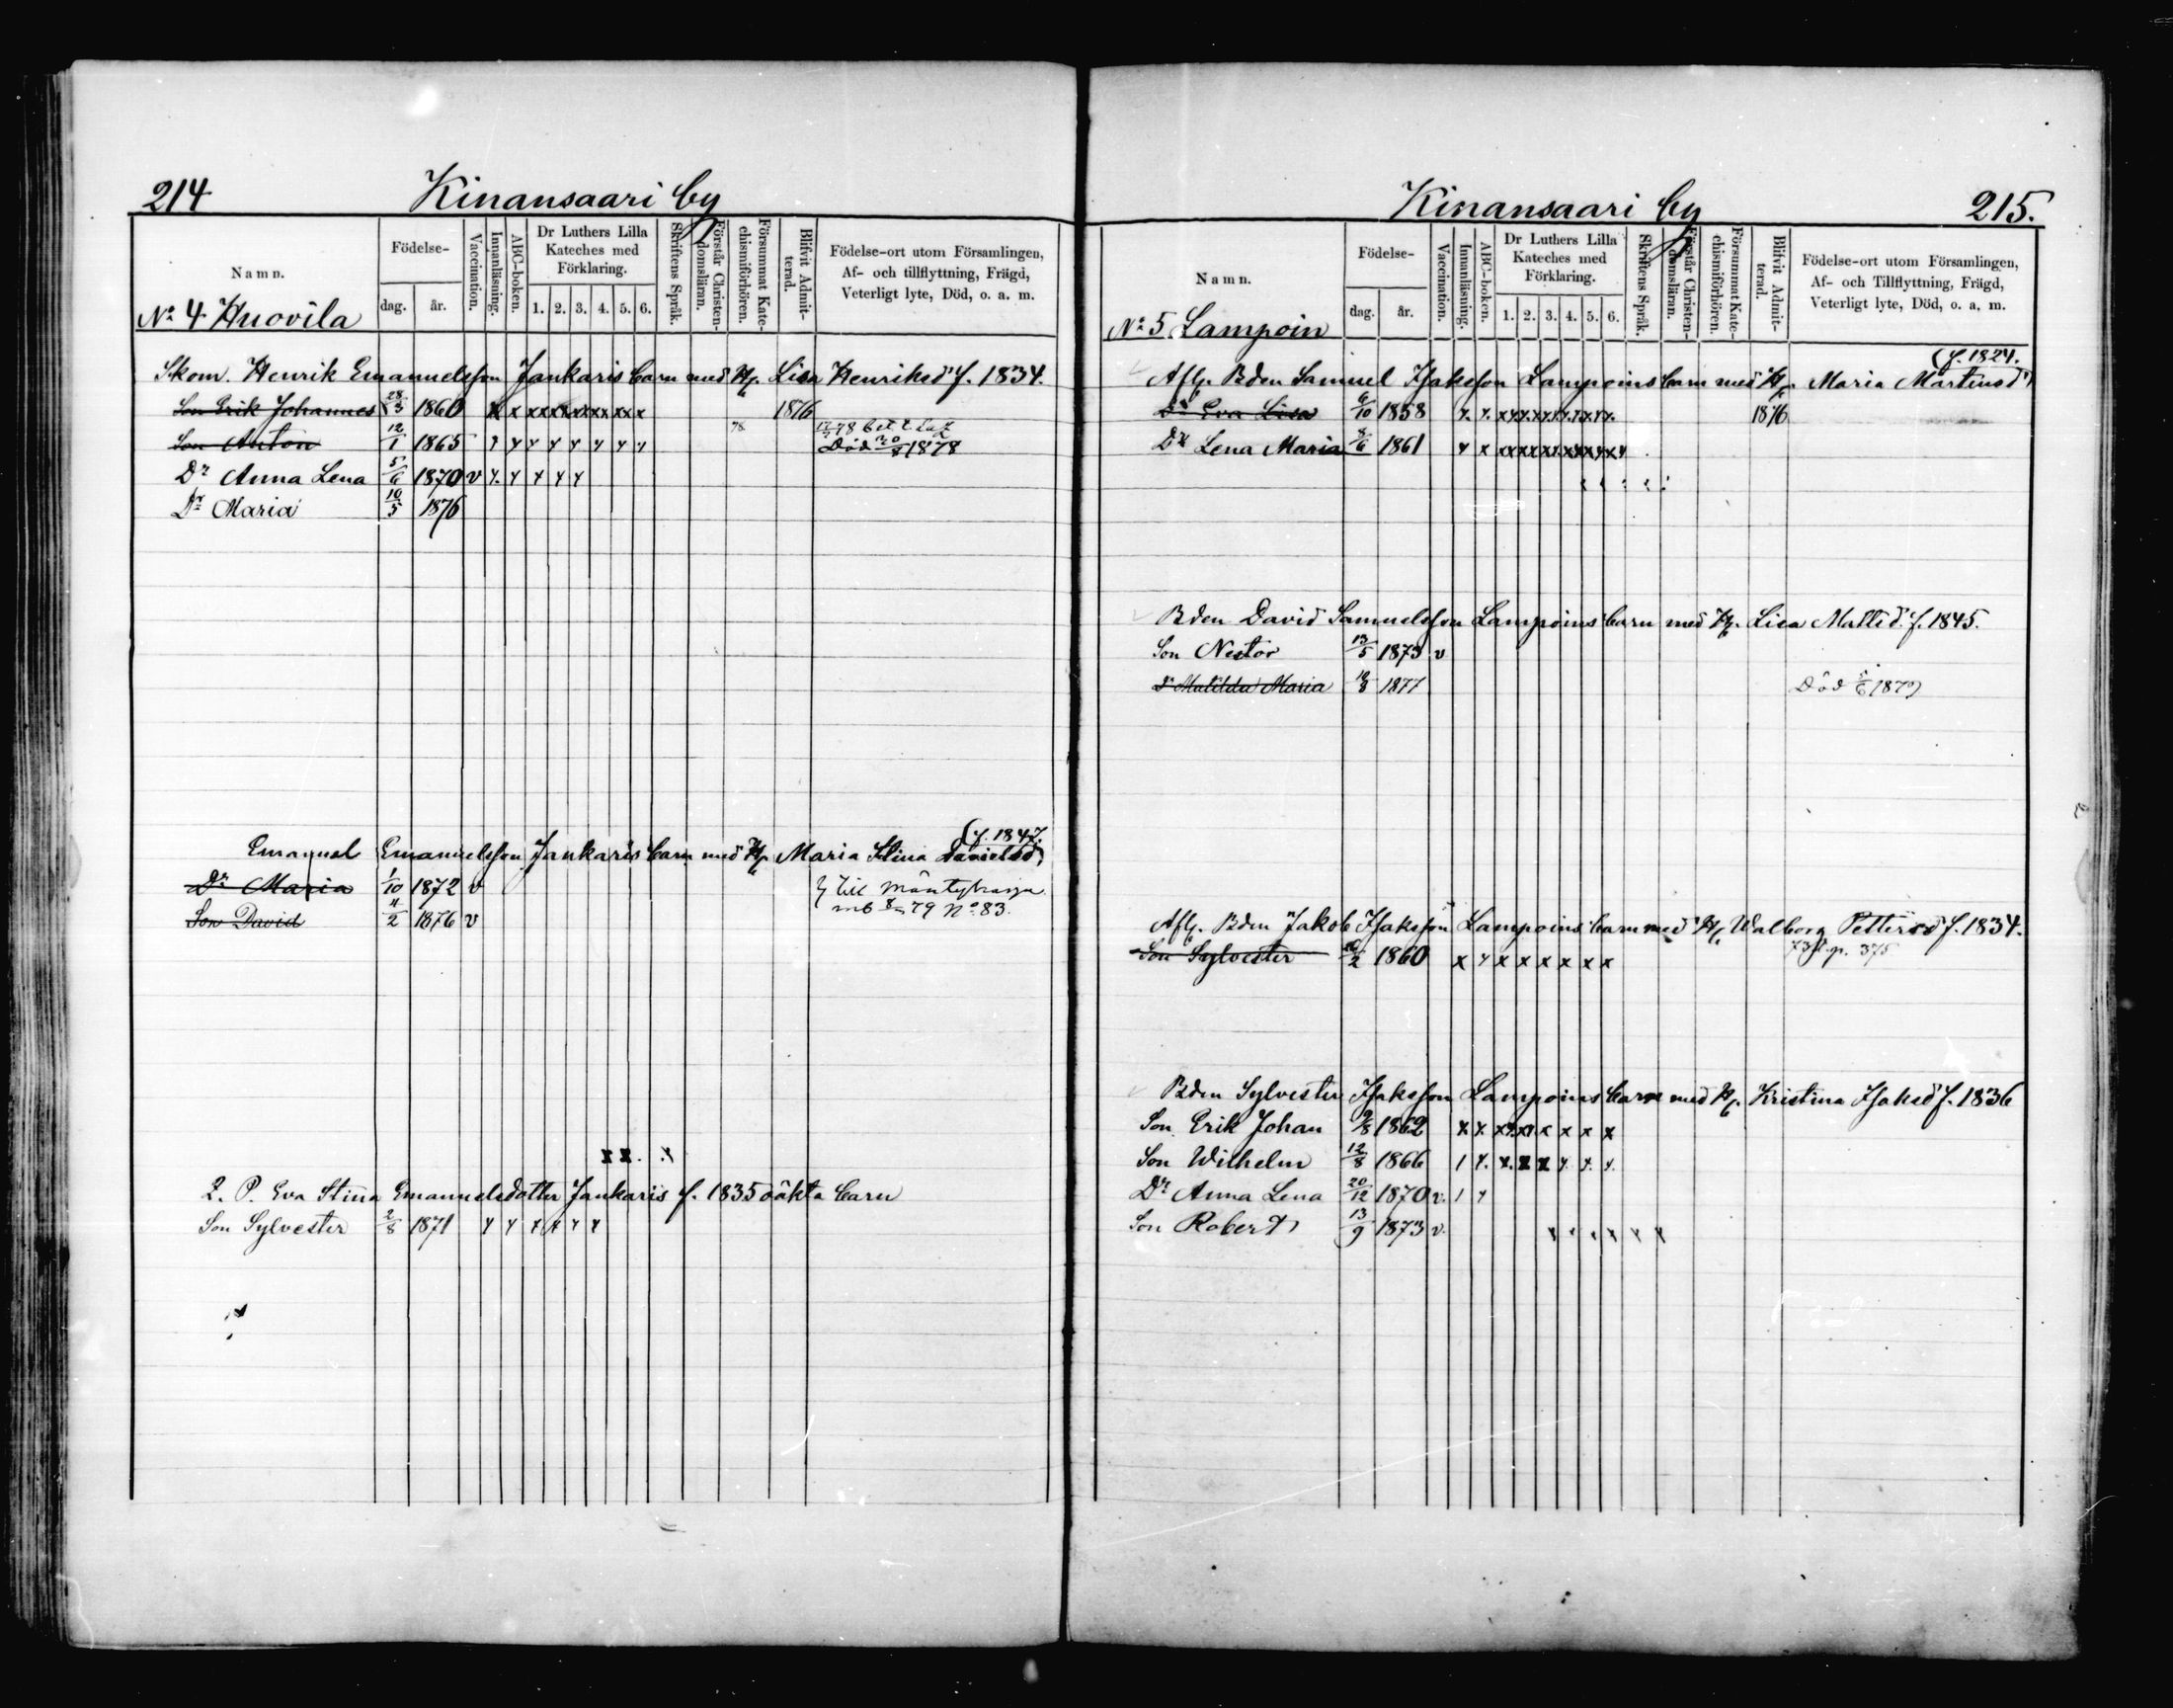 214 Kinansaari by
Namn. Födelse- dag. år. Vaccination. Innanläsning. ABC-boken. Dr Luthers Lilla Kateches med Förklaring. 1. 2. 3. 4. 5. 6. Skriftens Språk. Förstår Christendomsläran. Försummat Katechismiförhören. Blifvit Admitterad. Födelse-ort utom Församlingen, Af- och tillflyttning, Frägd, Veterligt lyte, Död, o. a. m.
No 4 Huovila
Skom. Henrik Emanuelsson Jankaris barn med H. Lisa Henriksd f. 1834.
Son Erik Johannes 28/3 1860 x x x x x x x x x x x x 1876
Son Anton 12/1 1865 y y y y y y y y 78 Död 1878
Dr Anna Lena 5/6 1870 v y. y y y y
Dr Maria 10/5 1876
(f. 1847.
Emanuel Emanuelsson Jankaris barn med H. Maria Stina Danielsd
Dr Maria 1/10 1872 v } till Mäntyharju
Son David 4/2 1876 v mb 79 No 83.
x x . x
2. P. Eva Stina Emanuelsdotter Jankaris f. 1835 oäkta barn
Son Sylvester 2/8 1871 y y x x y x
Kinansaari by 215.
Namn. Födelse- dag. år. Vaccination. Innanläsning. ABC-boken. Dr Luthers Lilla Kateches med Förklaring. 1. 2. 3. 4. 5. 6. Skriftens Språk. Förstår Christendomsläran. Försummat Katechismiförhören. Blifvit Admitterad. Födelse-ort utom Församlingen, Af- och Tillflyttning, Frägd, Veterligt lyte, Död, o. a. m.
No 5 Lampoin
(f. 1824.
Afl. Bden Samuel Isaksson Lampoins barn med H. Maria Martinsd
Dr Eva Lisa 6/10 1858 1876
Dr Lena Maria 8/6 1861
Bden David Samuelsson Lampoins barn med H. Lisa Mattsd. f. 1845.
Son Nestor 13/5 1873 v
Dr Matilda Maria 1877 Död
Afl. Bden Jakob Isaksson Lampoins barn med H. Walborg Pettersd f. 1834.
Son Sylvester 1860 x y x x x x x x 375
Bden Sylvester Isaksson Lampoins barn med H. Kristina Isaksd f. 1836
Son Erik Johan 9/8 1862 x x x x x x x x
Son Wilhelm 12/8 1866 1 y. x x x y y y.
Dr Anna Lena 20/12 1870 v. 1 y
Son Robert 13/9 1873 v.